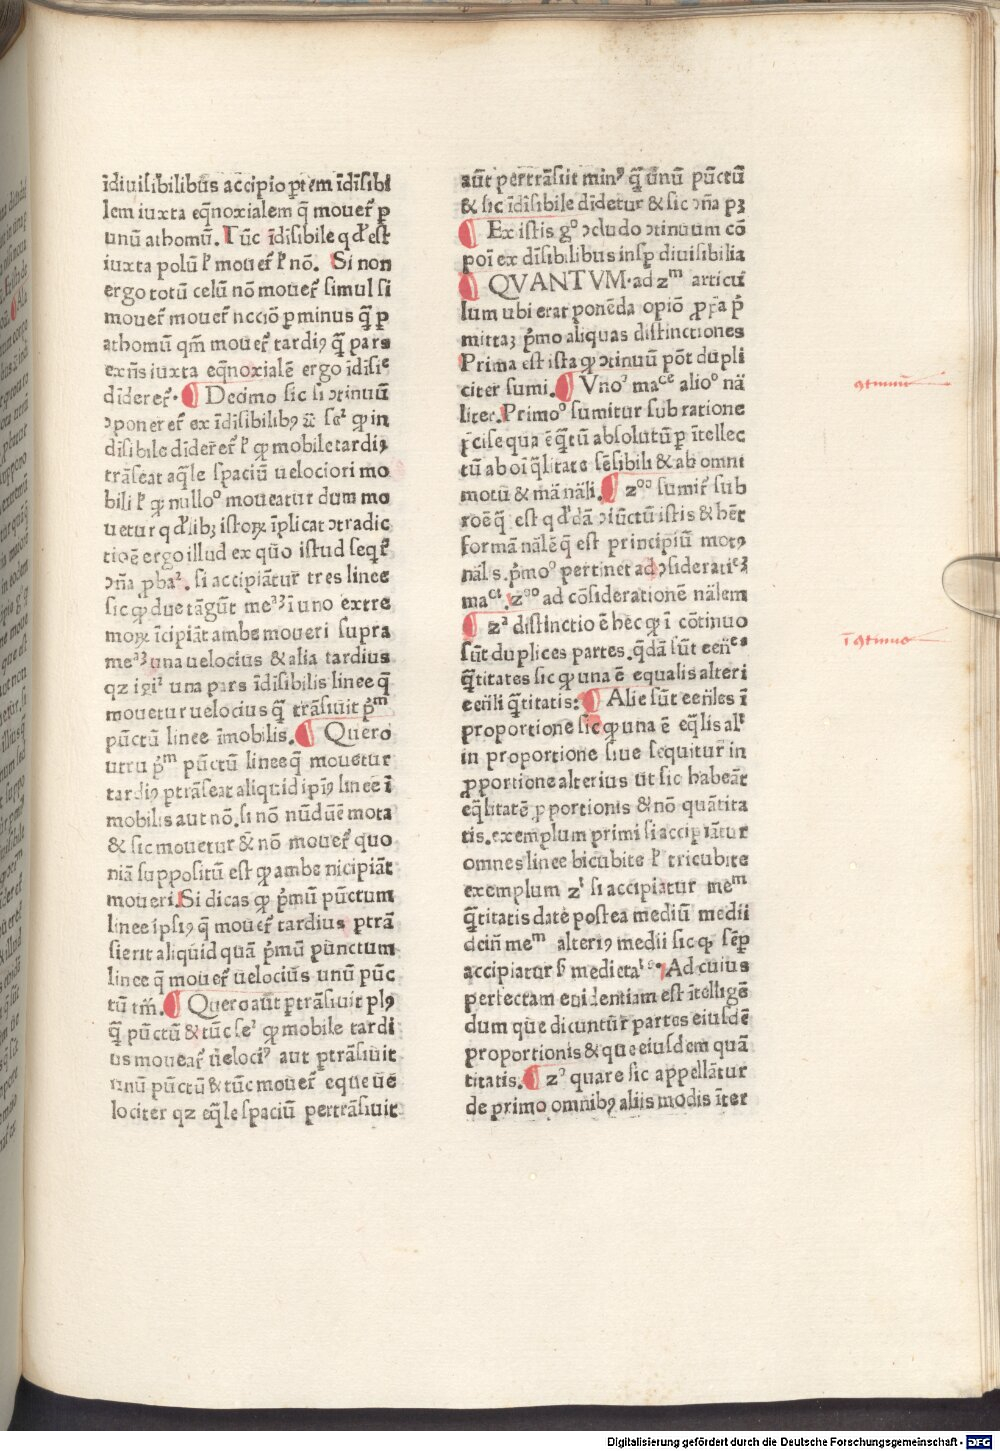 īdiuisibilibus accipio ꝑtem īdīsibi
lem iuxta eq̄noxialem q̄ mouet᷑ ꝑ
unū athomū. Tūc īdisibile q d̓ est
iuxta polū ł mouet᷑ ł nō. Si non
ergo totū celū nō mouet᷑ simul si
mouet᷑ mouet᷑ ꝑ minus q̄ ꝑ
athomū qm̄ mouet᷑ tardiꝰ q̄ pars
exn̄s iuxta eq̄noxialē ergo īdisie
dideret᷑. Decimo sic si ꝯtinuū
ꝯponeret᷑ ex īdisibilibꝰ seꝛ ꝙ in
disibile dideret᷑ ł ꝙ mobile tardiꝰ
trāseat aq̄le spaciū uelociori mo
bili ł ꝙ nulloº moueatur dum mo
uetur q d̓libꝫ istoꝝ īplicat ꝯtradic
tioē ergo illud ex quo istud seqt᷑
ꝯn̄a ꝓbaꝛ. si accipiātur tres linee
sic ꝙ due tāgūt meᵃꝫ ī uno extre
moꝝ īcipiāt ambe moueri supra
meᵃꝫ una uelocius & alia tardius
qz una pars īdisibilis linee q̄
mouetur uelocius q̄ trāsiuit p̄ᵐ
pūctū linee īmobilis. Quero
utrū p̄ᵐ pūctū linee q̄ mouetur
tardiꝰ ꝑtrāseat aliquid ipiꝰ linee ī
mobilis aut nō. si nō nūdū ē mota
& sic mouetur & nō mouet᷑ quo
niā suppositū est ꝙ ambe nicipiāt
moueri. Si dicas ꝙ p̄mū pūctum
linee ipsiꝰ q̄ mouet᷑ tardius ꝑtrā
sierit aliquid quā p̄mū punctum
linee q̄ mouet᷑ uelocius unū pūc
tū tm̄. Quero aūt ꝑtrāsiuit plꝰ
q̄ pūctū & tūc seꝛ ꝙ mobile tardi
us moueat᷑ ueloci᾽ aut ꝑtrāsiuit
unū pūctū & tūc mouet᷑ eque ue
lociter qz eq̄le spaciū pertrāsiuit
aūt pertrāsiit min᾽ q̄ unū pūctū
& sic īdisibile didetur & sic ꝯn̄a pꝫ
Ex istis gº ꝯcludo ꝯtinuum cō
poī ex disibilibus insꝑ diuisibilia
QVANTVM ad zᵐ articui
lum ubi erat ponēda opiō ꝓp̄a p̄
mittaꝫ p̄mo aliquas distinctiones
Prima est ista ꝙ ꝯtinuū pōt dupli
citer sumi. Vnoº maᶜᵉ alioº nā
liter. Primoº sumitur sub ratione
p̄cise qua ē q̄tū absolutū ꝑ ītellec
tū ab oī q̄litate sēsibili & ab omni
motū & mā nāli. zºº sumit᷑ sub
roē q̄ est q d̓dā ꝯiūctū istis & hēt
formā nālē q̄ est principiū motꝰ
nālis. p̄moº pertinet ad ꝯsideratiᵉꝫ
maᶜⁱ. zºº ad cōsiderationē nālem
zᵃ distinctio ē hec ꝙ ī cōtinuo
sūt duplices partes. q̄dā sūt eēn̄ᵉˢ
q̄titates sic ꝙ una ē equalis alteri
eēnli q̄titatis: Alie sūt eēnles ī
proportione sic ꝙ una ē eq̄lis alᵗ
in proportione siue sequitur in
ꝓportione alterius ut sic habeāt
eq̄litatē ꝓportionis & nō quātita
tis. exemplum primi si accipiātur
omnes linee bicubite ł tricubite
exemplum zⁱ si accipiatur meᵐ
q̄titatis date postea mediū medii
dein̄ meᵐ alteriꝰ medii sic qꝫ sēꝑ
accipiatur medietaᵗᵉ. Ad cuius
perfectam euidentiam est ītelligē
dum que dicuntur partes eiusdē
proportionis & que eiusdem quā
titatis. zº quare sic appellātur
de primo omnibꝰ aliis modis īter
ꝯtinuū
ī ꝯtinuo
Digitalisierung gefördert durch die Deutsche Forschungsgemeinschaft - DFG